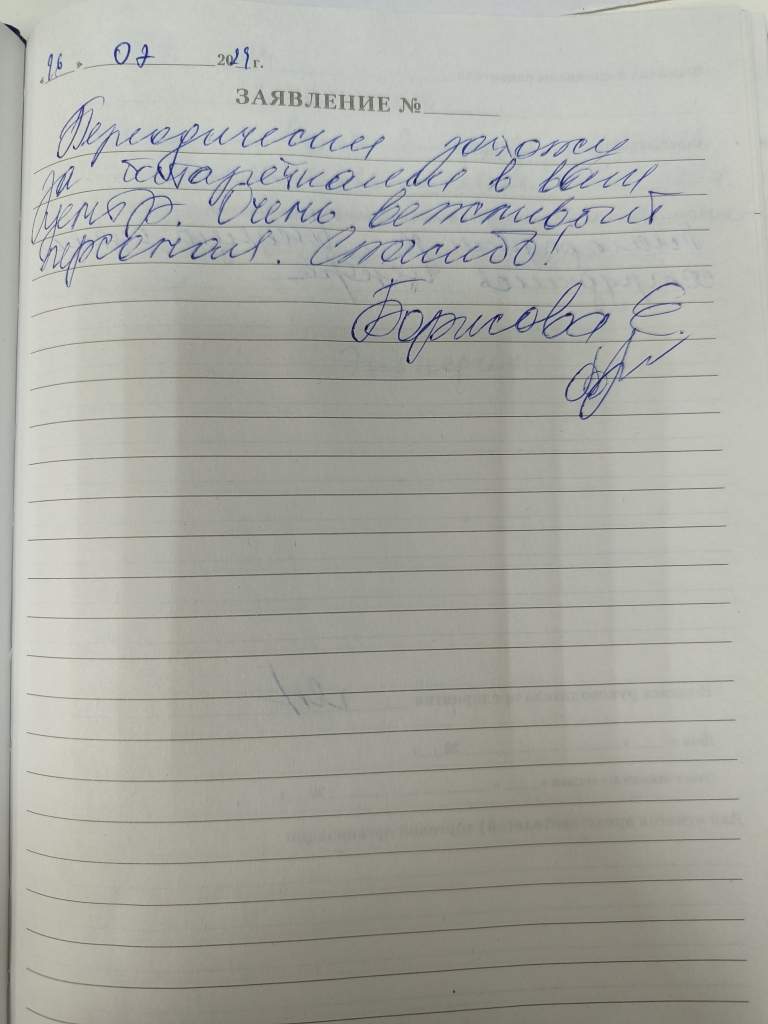 «26» 07 2024 г.
ЗАЯВЛЕНИЕ №
Периодически захожу
за батарейками в ваш
центр. Очень вежливый
персонал. Спасибо!
Борисова Е.